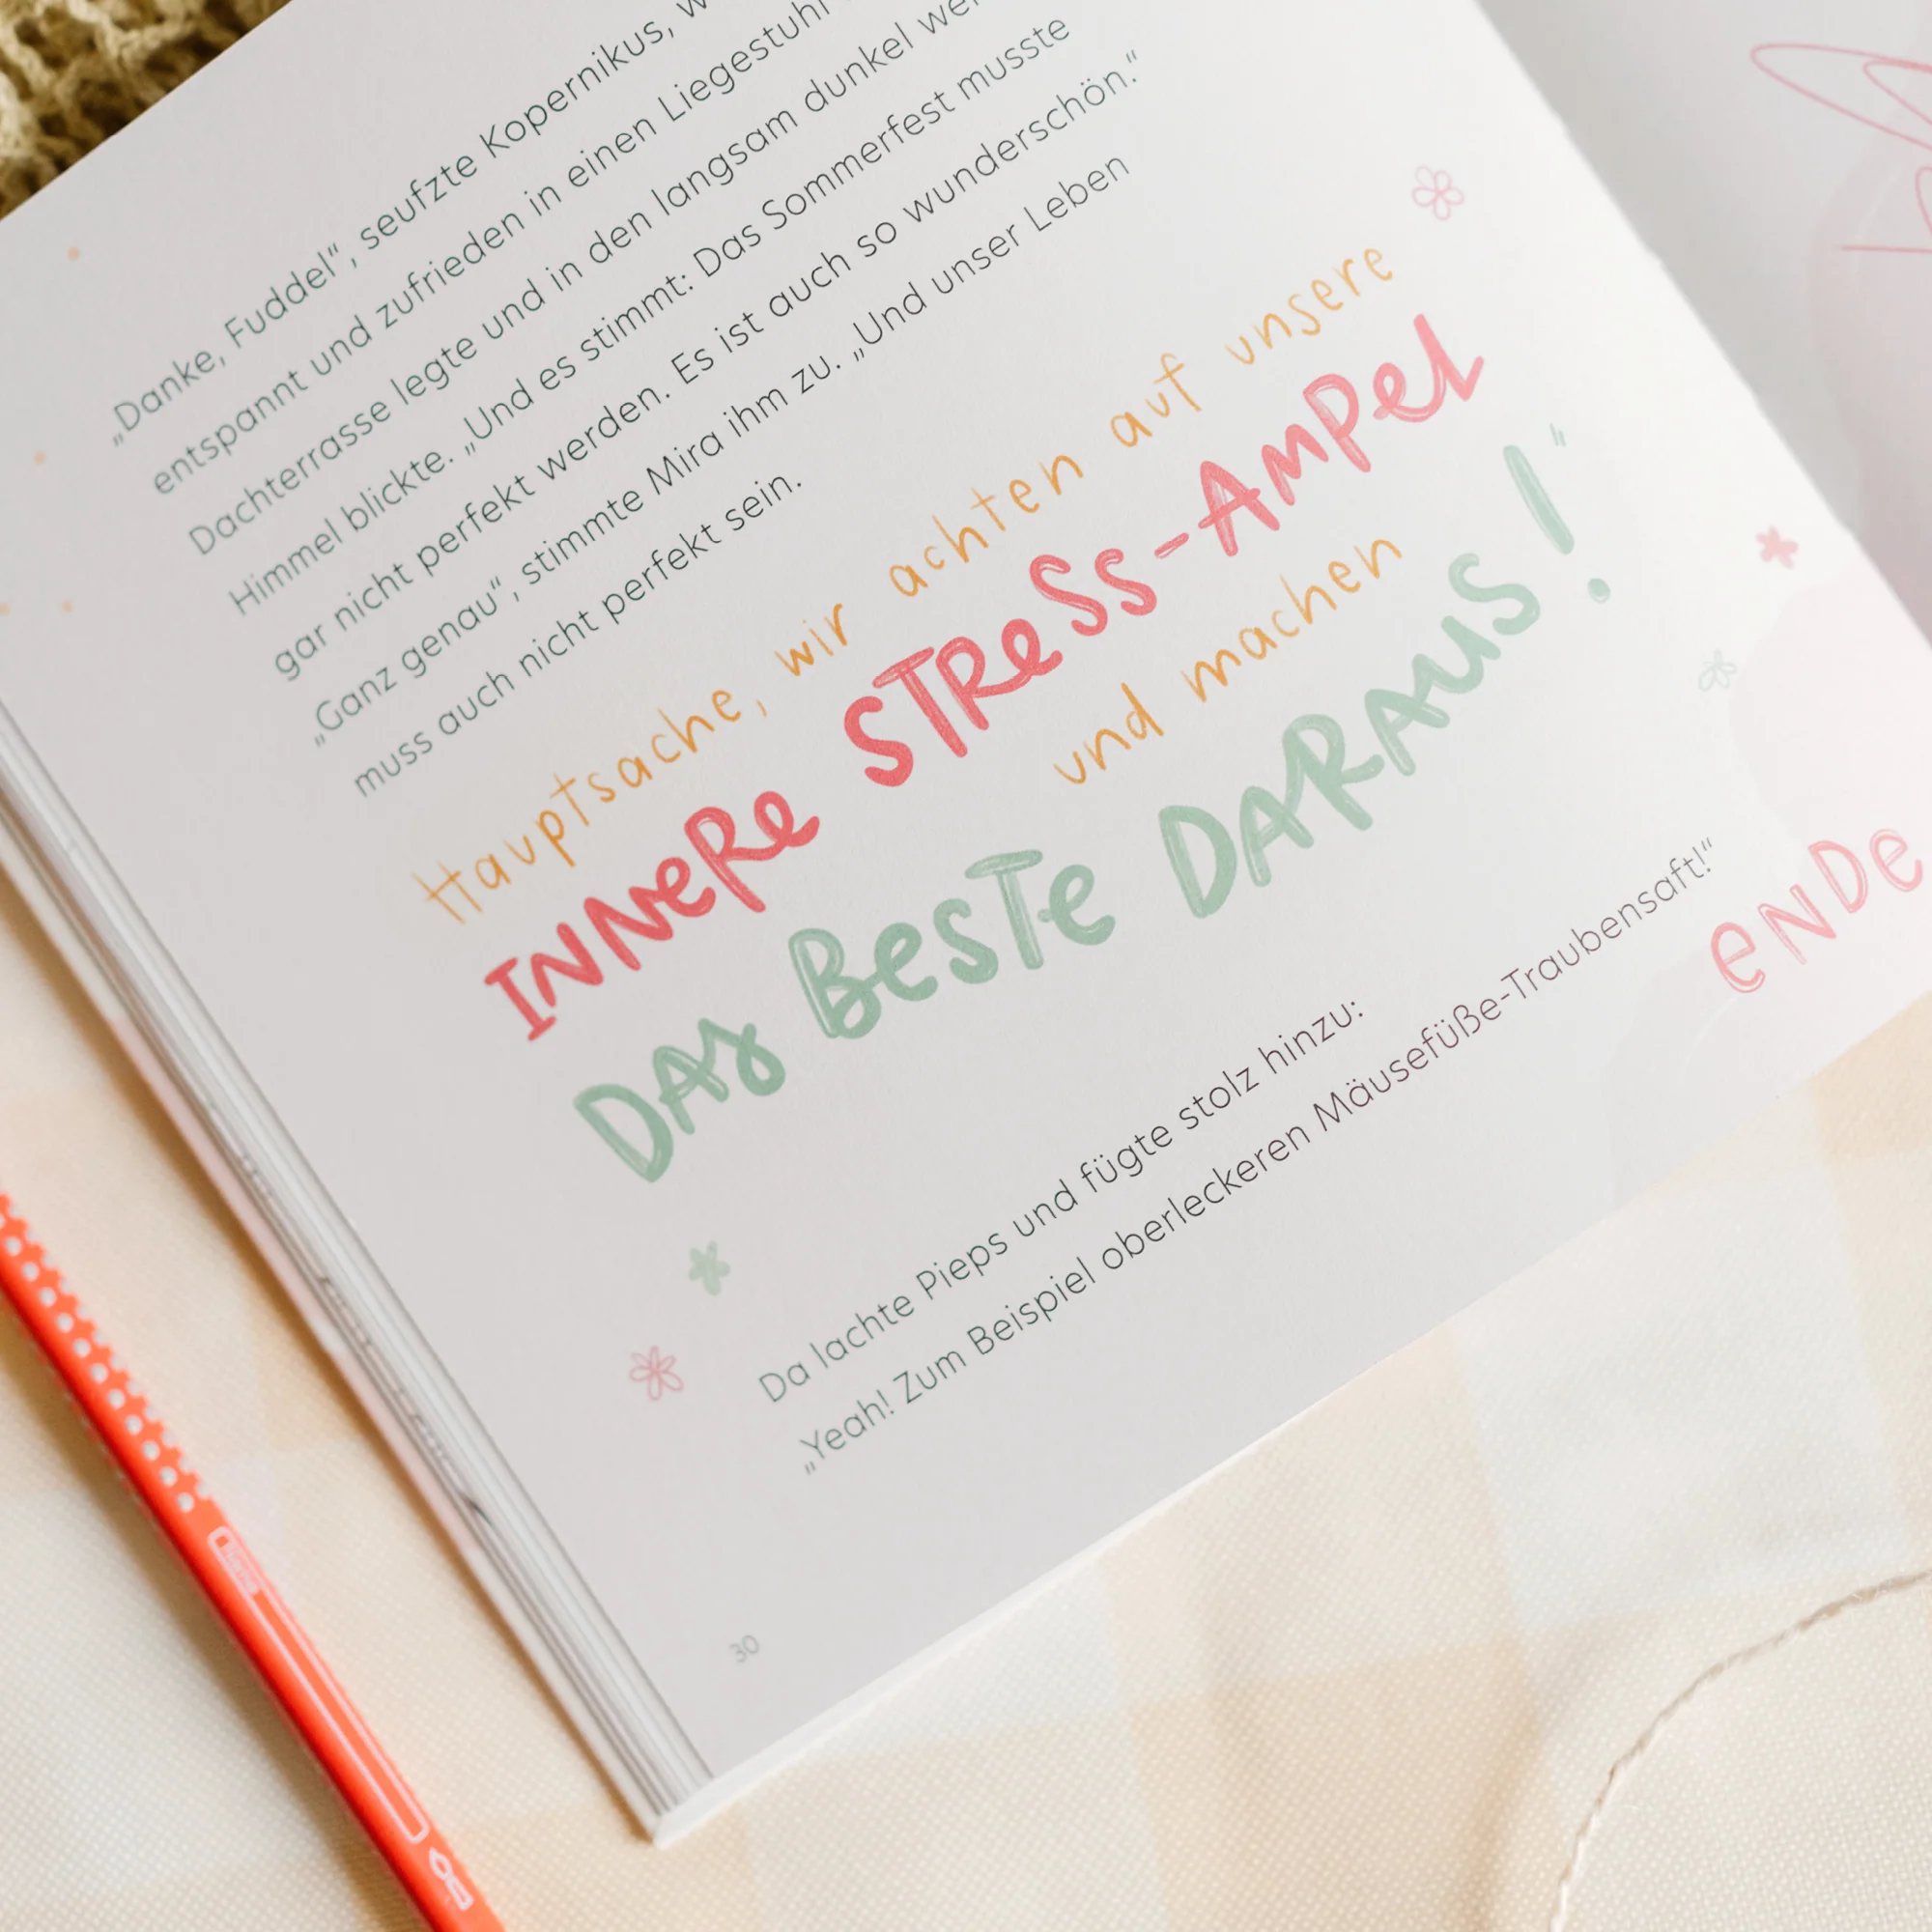 „Danke, Fuddel“, seufzte Kopernikus,
entspannt und zufrieden in einen Liegestuhl
Dachterrasse legte und in den langsam dunkel
Himmel blickte. „Und es stimmt: Das Sommerfest musste
gar nicht perfekt werden. Es ist auch so wunderschön.“
„Ganz genau“, stimmte Mira ihm zu. „Und unser Leben
muss auch nicht perfekt sein.
Hauptsache, wir achten auf unsere
INNERE STRESS-AMPEL
und machen
DAS BESTE DARAUS!“
Da lachte Pieps und fügte stolz hinzu:
„Yeah! Zum Beispiel oberleckeren Mäusefüße-Traubensaft!“
ENDE
30